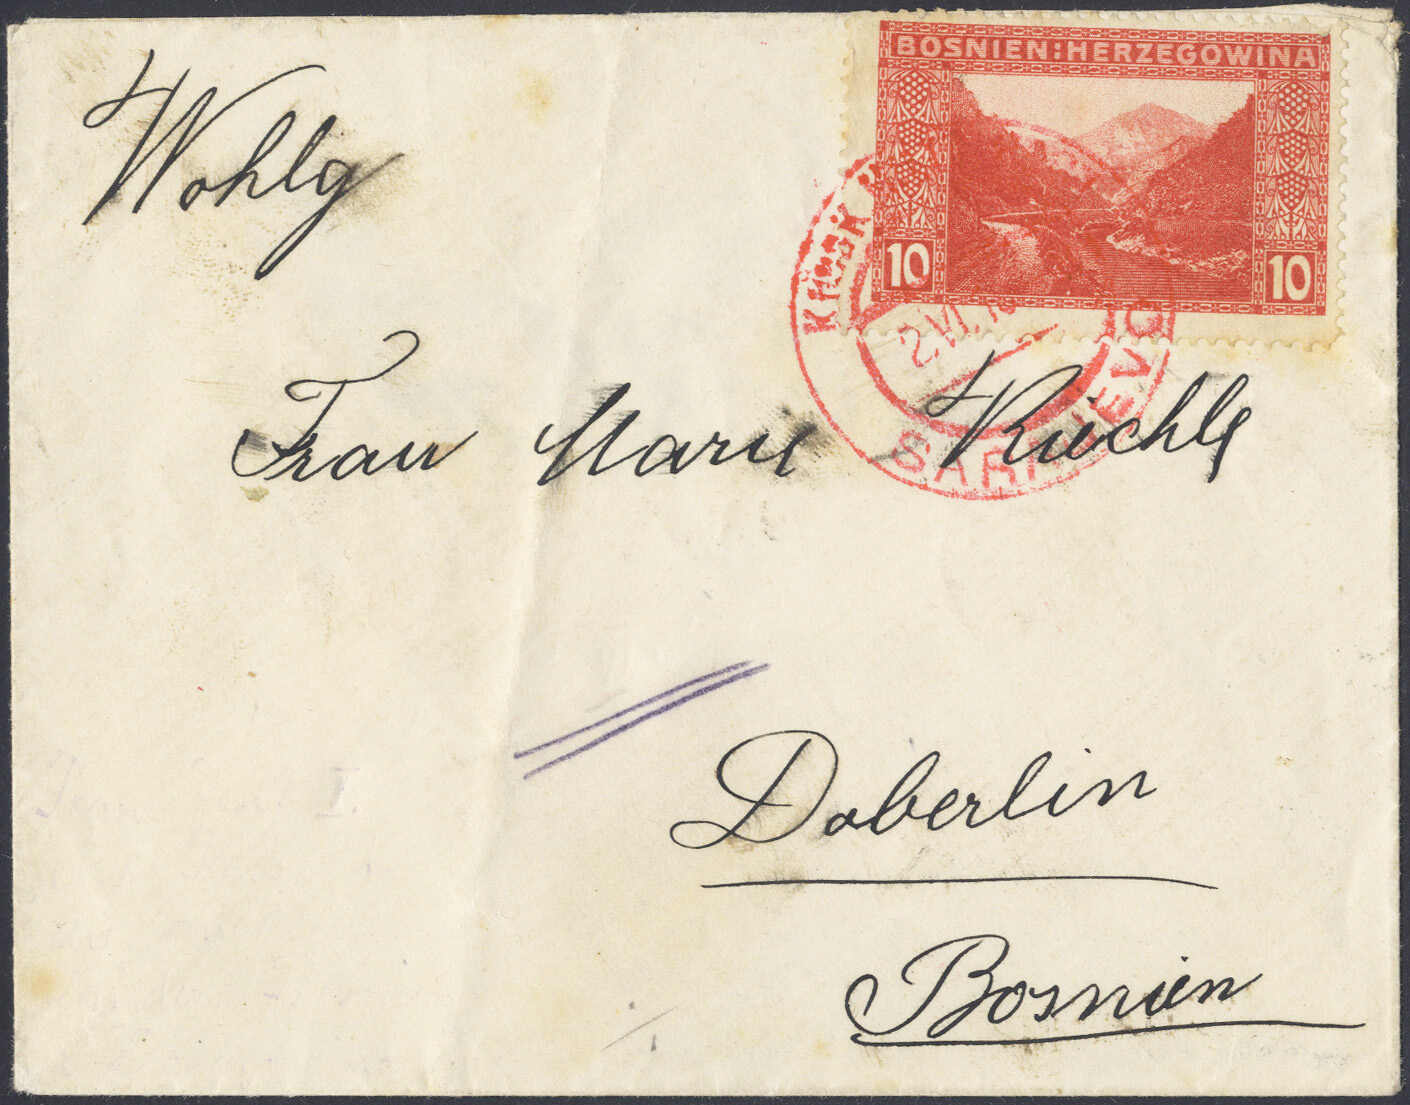 BOSNIEN:HERZEGOWINA
10 10
2.VI.
SARAJEVO
Wohlg
Frau Marie
Doberlin
Bosnien